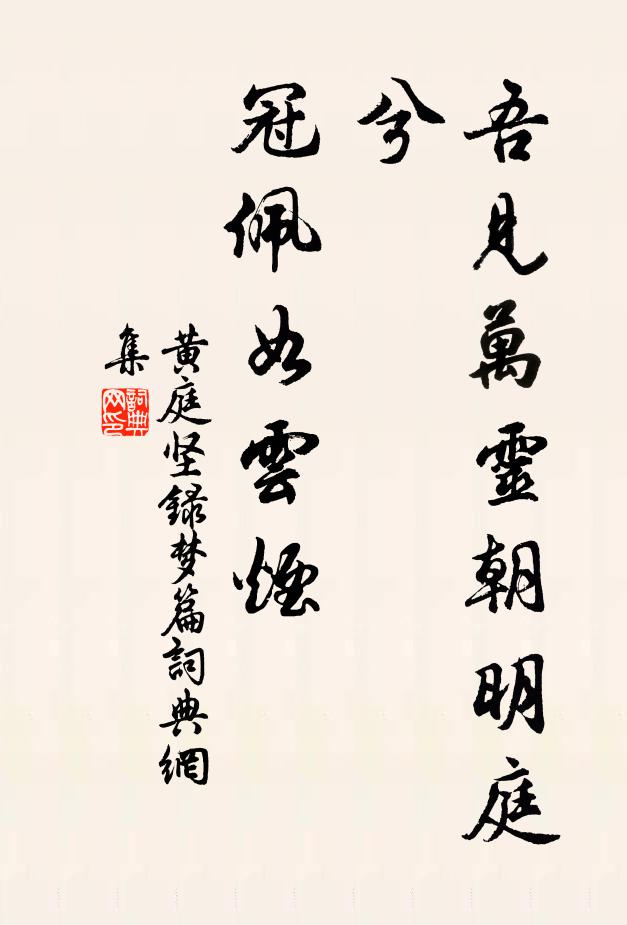 吾見萬靈朝明庭
兮
冠佩如雲煙
黄庭坚録梦篇詞典網
集
詞典
网印